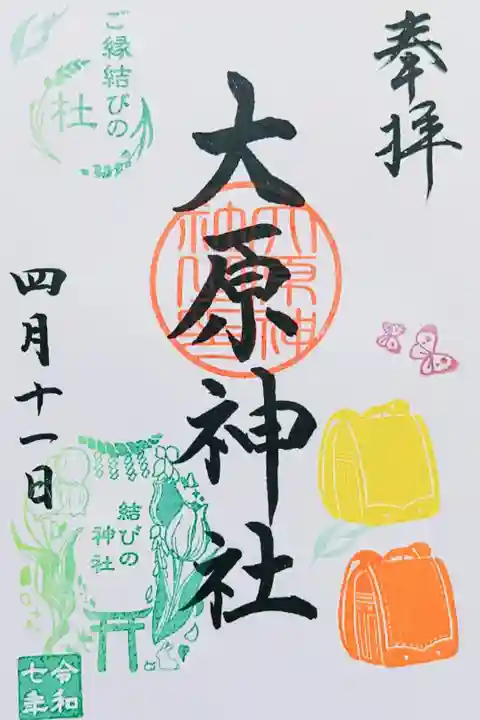 奉拝
大原神社
四月十一日
ご縁結びの
社
結びの
神社
令和
七年